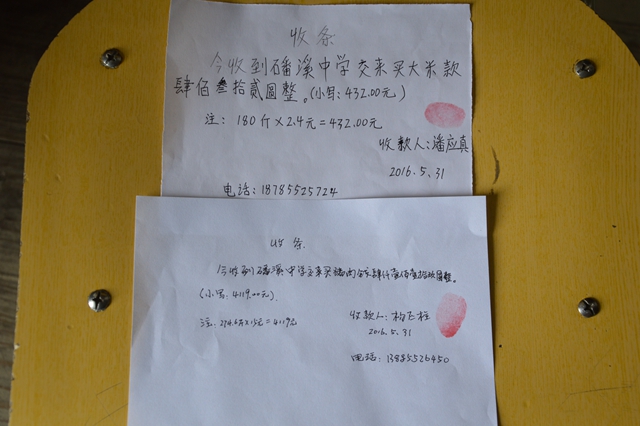 收条
今收到磻溪中学交来买大米款
肆佰叁拾贰圆整。(小写:432.00元)
注: 180斤×2.4元=432.00元
收款人:潘应真
2016.5.31
电话:18785525724
收条
今收到磻溪中学交来买猪肉金额肆仟壹佰壹拾玖圆整。
(小写:4119.00元).
注:274.6斤×15元=4119元
收款人:杨飞柱
2016.5.31
电话:13885526450